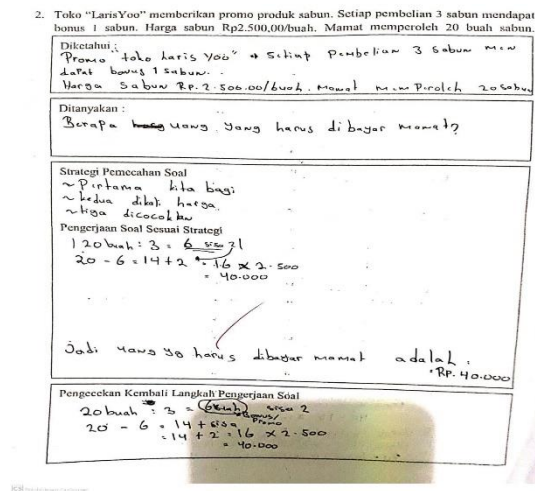 2. Toko "LarisYoo" memberikan promo produk sabun. Setiap pembelian 3 sabun mendapat
bonus 1 sabun. Harga sabun Rp2.500,00/buah. Mamat memperoleh 20 buah sabun.
Diketahui :
Promo "toko Laris Yoo" → Setiap Pembelian 3 sabun men
dapat bonus 1 sabun.
Harga Sabun RP. 2.500.00/buah. Mamat memperoleh 20 sabun
Ditanyakan :
Berapa uang yang harus dibayar mamat?
Strategi Pemecahan Soal
~ Pertama kita bagi
~ kedua dikali harga
~ tiga dicocokkan
Pengerjaan Soal Sesuai Strategi
20 buah : 3 = 6 sisa 2
20 - 6 = 14 + 2 = 16 x 2.500
= 40.000
Jadi uang yg harus dibayar mamat adalah :
RP. 40.000
Pengecekan Kembali Langkah Pengerjaan Soal
20 buah : 3 = 6 buah sisa 2
Bonus/
Promo
20 - 6 = 14 + sisa
= 14 + 2 = 16 x 2.500
= 40.000